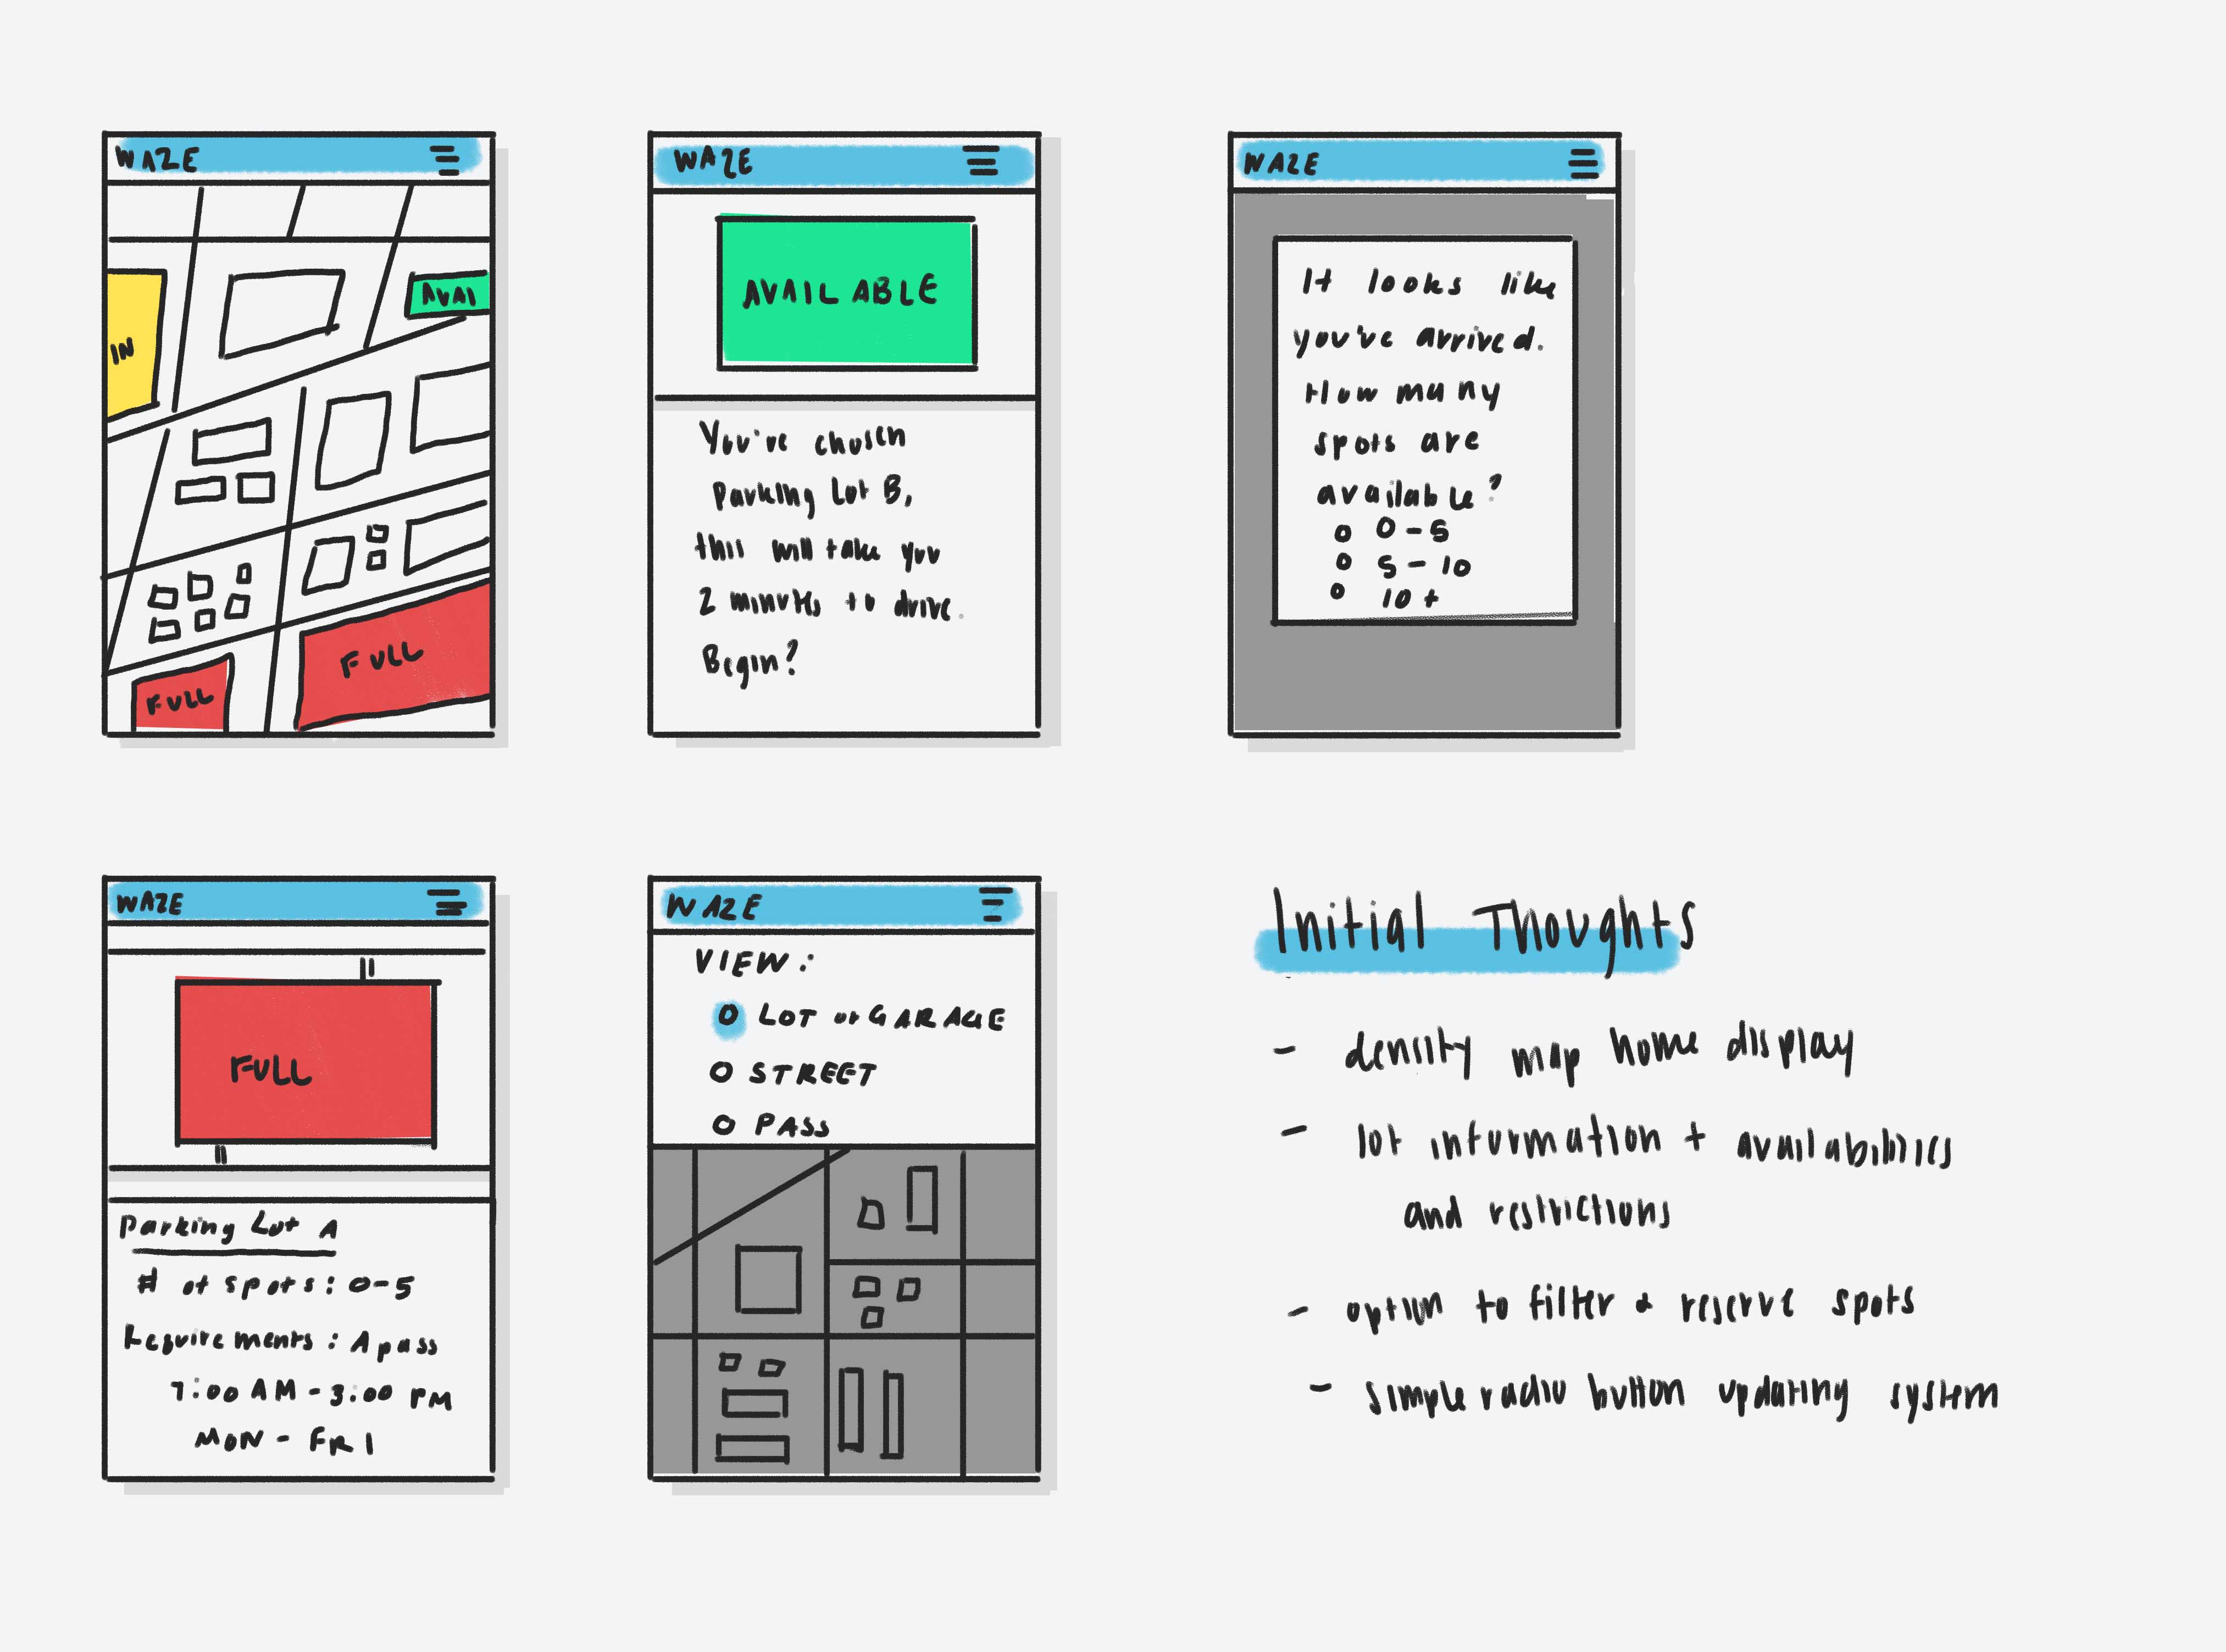 WAZE
AVAI
IN
FULL
FULL
WAZE
AVAILABLE
You've chosen
Parking Lot B,
this will take you
2 minutes to drive.
Begin?
WAZE
It looks like
you've arrived.
How many
spots are
available?
0-5
5-10
10+
WAZE
FULL
Parking Lot A
# of spots: 0-5
Requirements: A pass
7:00 AM - 3:00 PM
MON - FRI
WAZE
VIEW:
LOT or GARAGE
STREET
PASS
Initial Thoughts
- density map home display
- lot information + availabilities
and restrictions
- option to filter & reserve spots
- simple radio button updating system